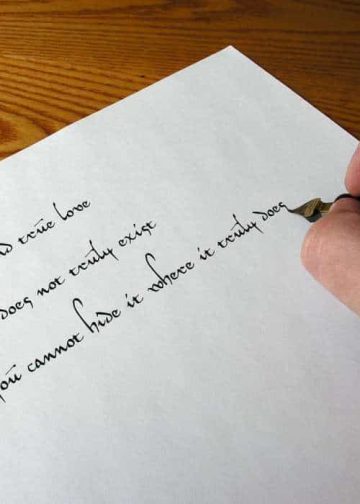 true love
does not truly exist
you cannot hide it where it truly does